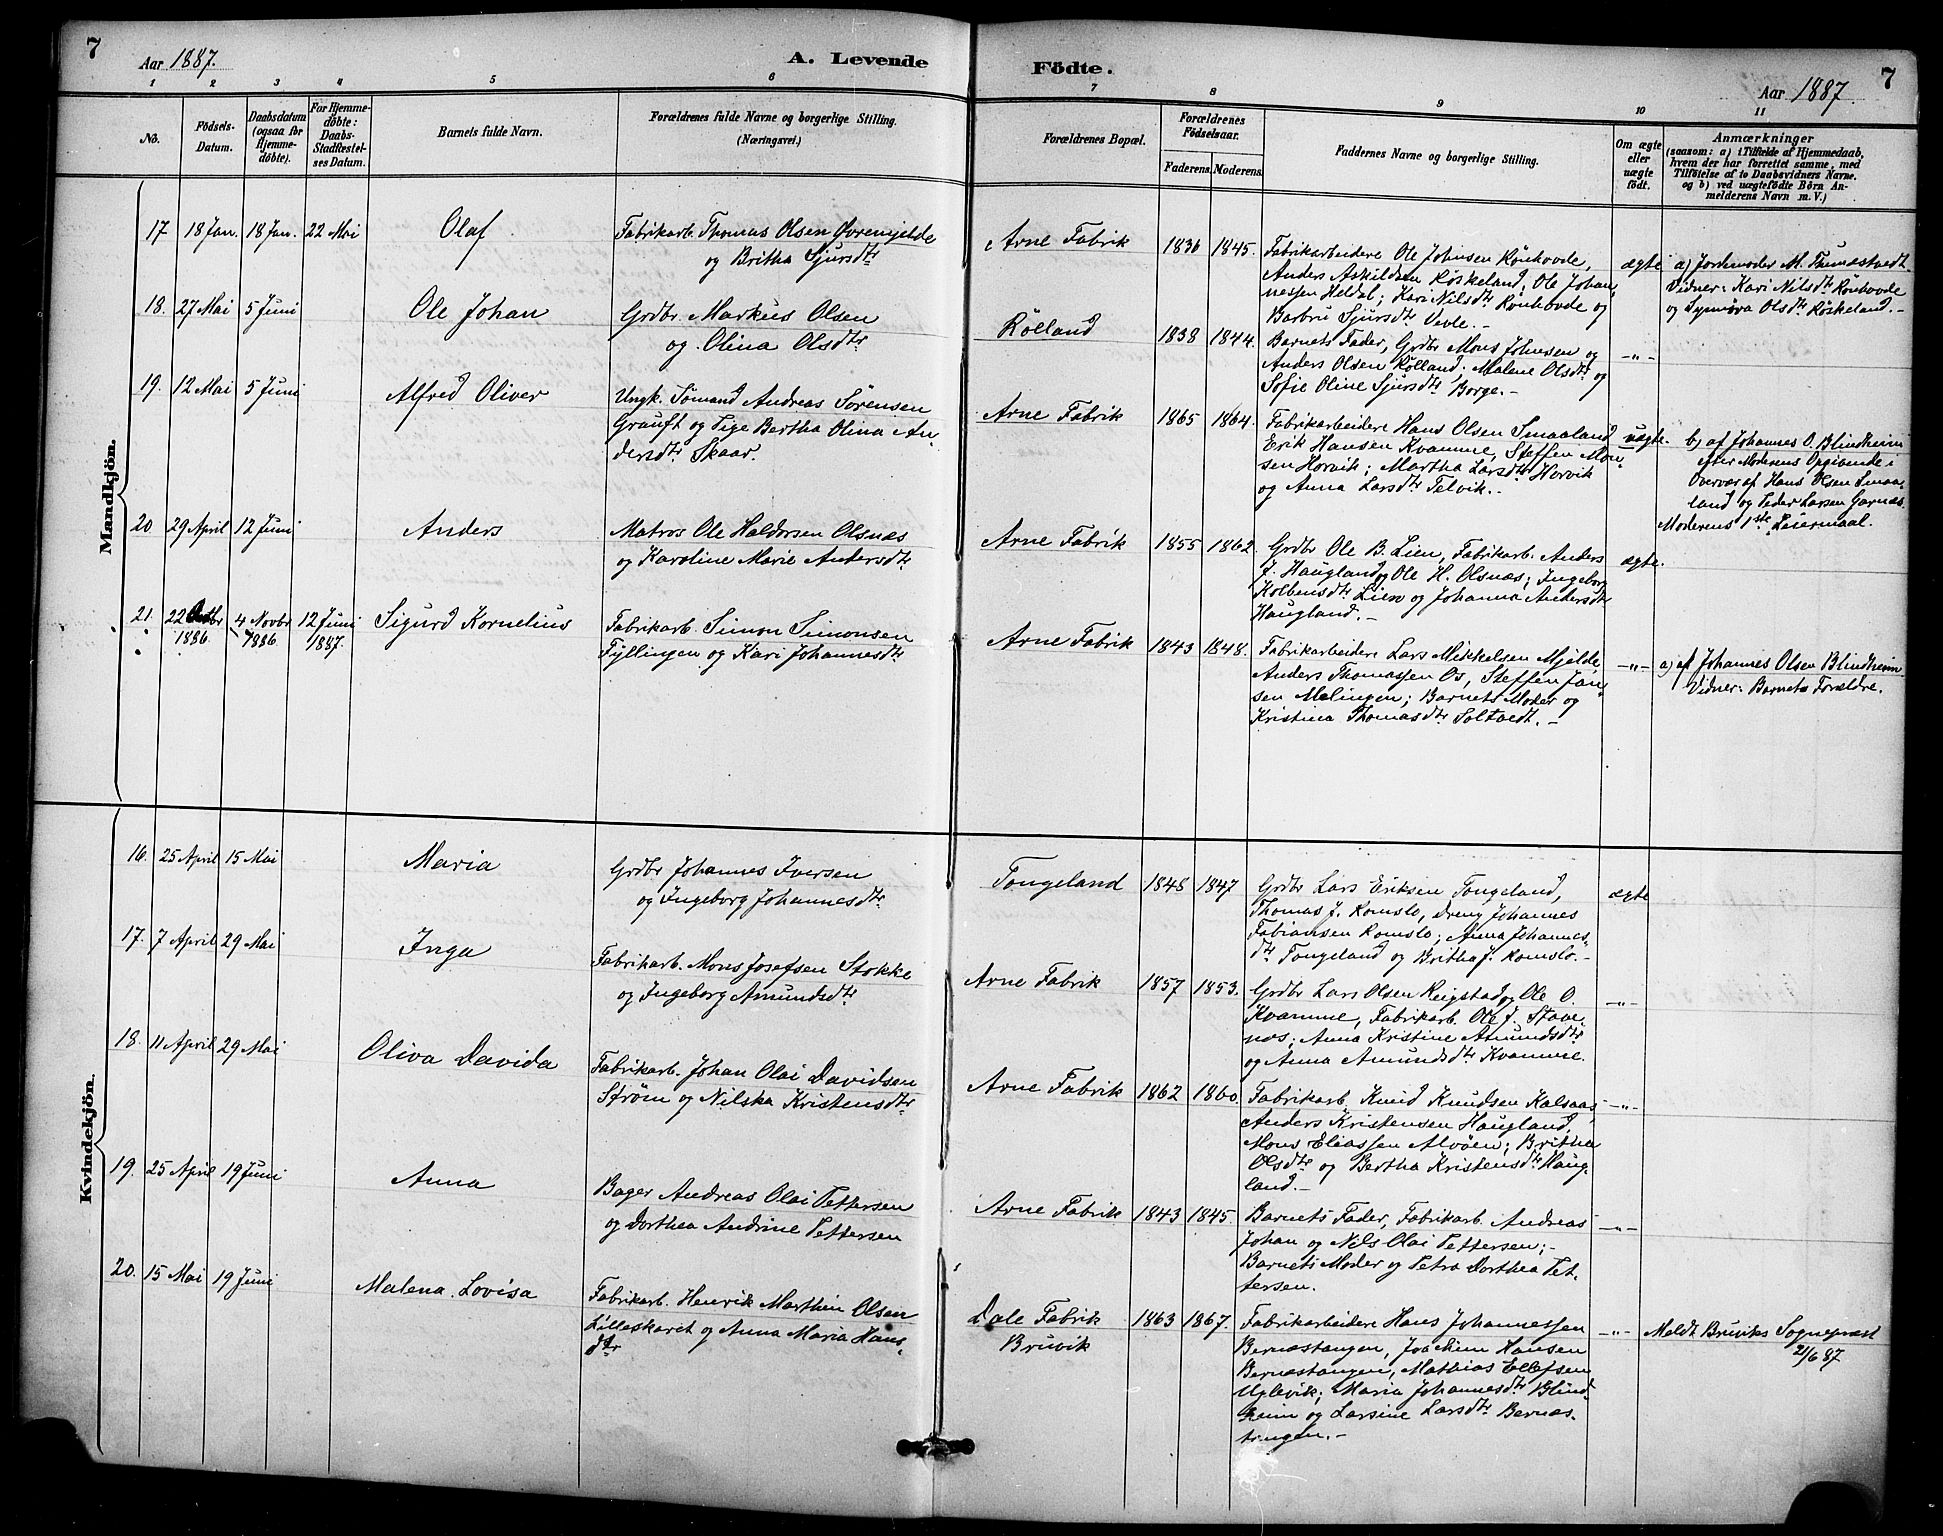 7
Aar 1887.
A. Levende
Födte.
Aar 1887.
7
1 2 3 4 5 6 7 8 9 10 11
No.
Födsels-
Datum.
Daabsdatum
(ogsaa for
Hjemme-
døbte).
For Hjemme-
døbte:
Daabs-
Stadfæstel-
ses Datum.
Barnets fulde Navn.
Forældrenes fulde Navne og borgerlige Stilling.
(Næringsvei.)
Forældrenes Bopæl.
Forældrenes
Födselsaar.
Faderens.
Moderens.
Faddernes Navne og borgerlige Stilling.
Om ægte
eller
uægte
födt.
Anmærkninger
(saasom: a) i Tilfælde af Hjemmedaab,
hvem der har forrettet samme, med
Tilföielse af to Daabsvidners Navne.
og b) ved uægtefödte Börn An-
melderens Navn m. V.)
Mandkjön.
17 18 Jan. 18 Jan. 22 Mai
Olaf
Fabrikarb. Thomas Olsen Øvremjelde
og Britha Sjursdtr
Arne Fabrik
1836 1845.
Fabrikarbeidere Ole Johnsen Rønhovde,
Anders Askildsen Røskeland, Ole Johan-
nessen Heldal; Kari Nilsdtr Rønhovde og
Barbru Sjursdtr Vevle.-
ægte
a) Jordemoder M. Tunæstvedt
Vidner: Kari Nilsdtr Rønhovde
og Synnøva Olsdtr Røskeland.-
18. 27 Mai 5 Juni
Ole Johan
Grdbr Markus Olsen
og Olina Olsdtr
Rölland
1838 1844.
Barnets Fader, Grdbr Mons Johnsen og
Anders Olsen Rølland. Malene Olsdtr og
Sofie Oline Sjursdtr Borge.-
-"-
19. 12 Mai 5 Juni
Alfred Oliver
Ungk. Sömand Andreas Sörensen
Grauft og Pige Bertha Olina An-
dersdtr Skaar.
Arne Fabrik
1865 1864.
Fabrikarbeidere Hans Olsen Smaaland
Erik Hansen Kvamme, Steffen Mon-
sen Horvik; Martha Larsdtr Horvik
og Anna Larsdtr Telvik.-
uægte.
b) af Johannes O. Blindheim
efter Moderens Opgivende i
Overvær af Hans Olsen Smaa-
land og Peder Larsen Garnæs.
Moderens 1ste Leiermaal.
20 29 April 12 Juni
Anders
Matros Ole Haldorsen Olsnæs
og Karoline Marie Andersdtr
Arne Fabrik
1855 1862.
Grdbr Ole B. Lien, Fabrikarb. Anders
J. Haugland og Ole H. Olsnæs; Ingeborg
Kolbensdtr Lien og Johanna Andersdtr
Haugland.-
ægte.
21. 22 Octbr 4 Novbr 12 Juni
1886 1886 1887.
Sigurd Kornelius
Fabrikarb. Simon Simonsen
Fyllingen og Kari Johannesdtr
Arne Fabrik
1843 1848.
Fabrikarbeidere Lars Mikkelsen Mjelde
Anders Thomassen Os, Steffen Jan-
sen Malingen; Barnets Moder og
Kristina Thomasdtr Soltvedt.-
-"-
a) af Johannes Olsen Blindheim
Vidner: Barnets Forældre.
Kvindekjön.
16. 25 April 15 Mai
Maria
Grdbr Johannes Iversen
og Ingeborg Johannesdtr
Tongeland
1848 1847
Grdbr Lars Eriksen Tongeland,
Thomas J. Romslo, Dreng Johannes
Fabiansen Romslo; Anna Johannes-
dtr Tongeland og Britha J. Romslo.-
ægte
17. 7 April 29 Mai
Inga
Fabrikarb. Mons Josefsen Stokke
og Ingeborg Amundsdtr
Arne Fabrik
1857 1853.
Grdbr Lars Olsen Reigstad og Ole O.
Kvamme, Fabrikarb. Ole J. Stave-
nos; Anna Kristine Amundsdtr
og Anna Amundsdtr Kvamme.
-"-
18. 11 April 29 Mai
Oliva Davida
Fabrikarb. Johan Olai Davidsen
Strøm og Nilska Kristensdtr
Arne Fabrik
1862 1860.
Fabrikarb. Knud Knudsen Kalsaas
Anders Kristensen Haugland,
Mons Eliassen Alvöen; Britha
Olsdtr og Bertha Kristensdtr Haug-
land.-
-"-
19. 25 April 19 Juni
Anna
Bager Andreas Olai Pettersen
og Dorthea Andrine Pettersen
Arne Fabrik
1843 1845.
Barnets Fader, Fabrikarb. Andreas
Johan og Nils Olai Pettersen;-
Barnets Moder og Petra Dorthea Pet-
tersen.
-"-
20. 15 Mai 19 Juni
Malena Lovisa
Fabrikarb. Henrik Marthin Olsen
Lilleskaret og Anna Maria Hans-
dtr
Dale Fabrik
Bruvik
1863 1867.
Fabrikarbeidere Hans Johannessen
Bernæstangen, Joachim Hansen
Bernæstangen, Mathias Ellefsen
Uglevik; Maria Johannesdtr Blind-
heim og Larsine Larsdtr Bernæs-
tangen.-
-"-
Meldt Bruviks Sognepræst
21/6 87